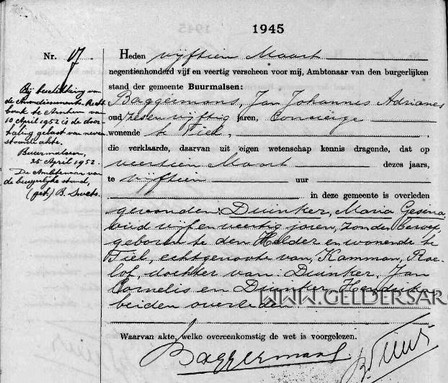 1945
Nr. 17
Heden vijftien Maart
negentienhonderd vijf en veertig verscheen voor mij, Ambtenaar van den burgerlijken
stand der gemeente Buurmalsen:
Baggermans, Jan Johannes Adrianes
oud zeven vijftig jaren, concierge
wonende te Tiel,
die verklaarde, daarvan uit eigen wetenschap kennis dragende, dat op
veertien Maart dezes jaars,
te vijftien uur
in deze gemeente is overleden
gevonden Duinker, Maria Gesina
oud vijf en veertig jaren, zonder beroep,
geboren te den Helder en wonende te
Tiel, echtgenoote van, Kamman, Roe-
lof, dochter van: Duinker, Jan
Cornelis en Duinker,
beiden overleden
Waarvan akte, welke overeenkomstig de wet is voorgelezen.
Baggermans
Bij beschikking van
de Arrondissements Recht-
bank te Arnhem van
10 April 1952 is de door-
haling gelast van neven-
staande akte.
Buurmalsen,
25 April 1952.
De Ambtenaar van
de burgerlijke stand,
(get)
WWW.GELDERSAR